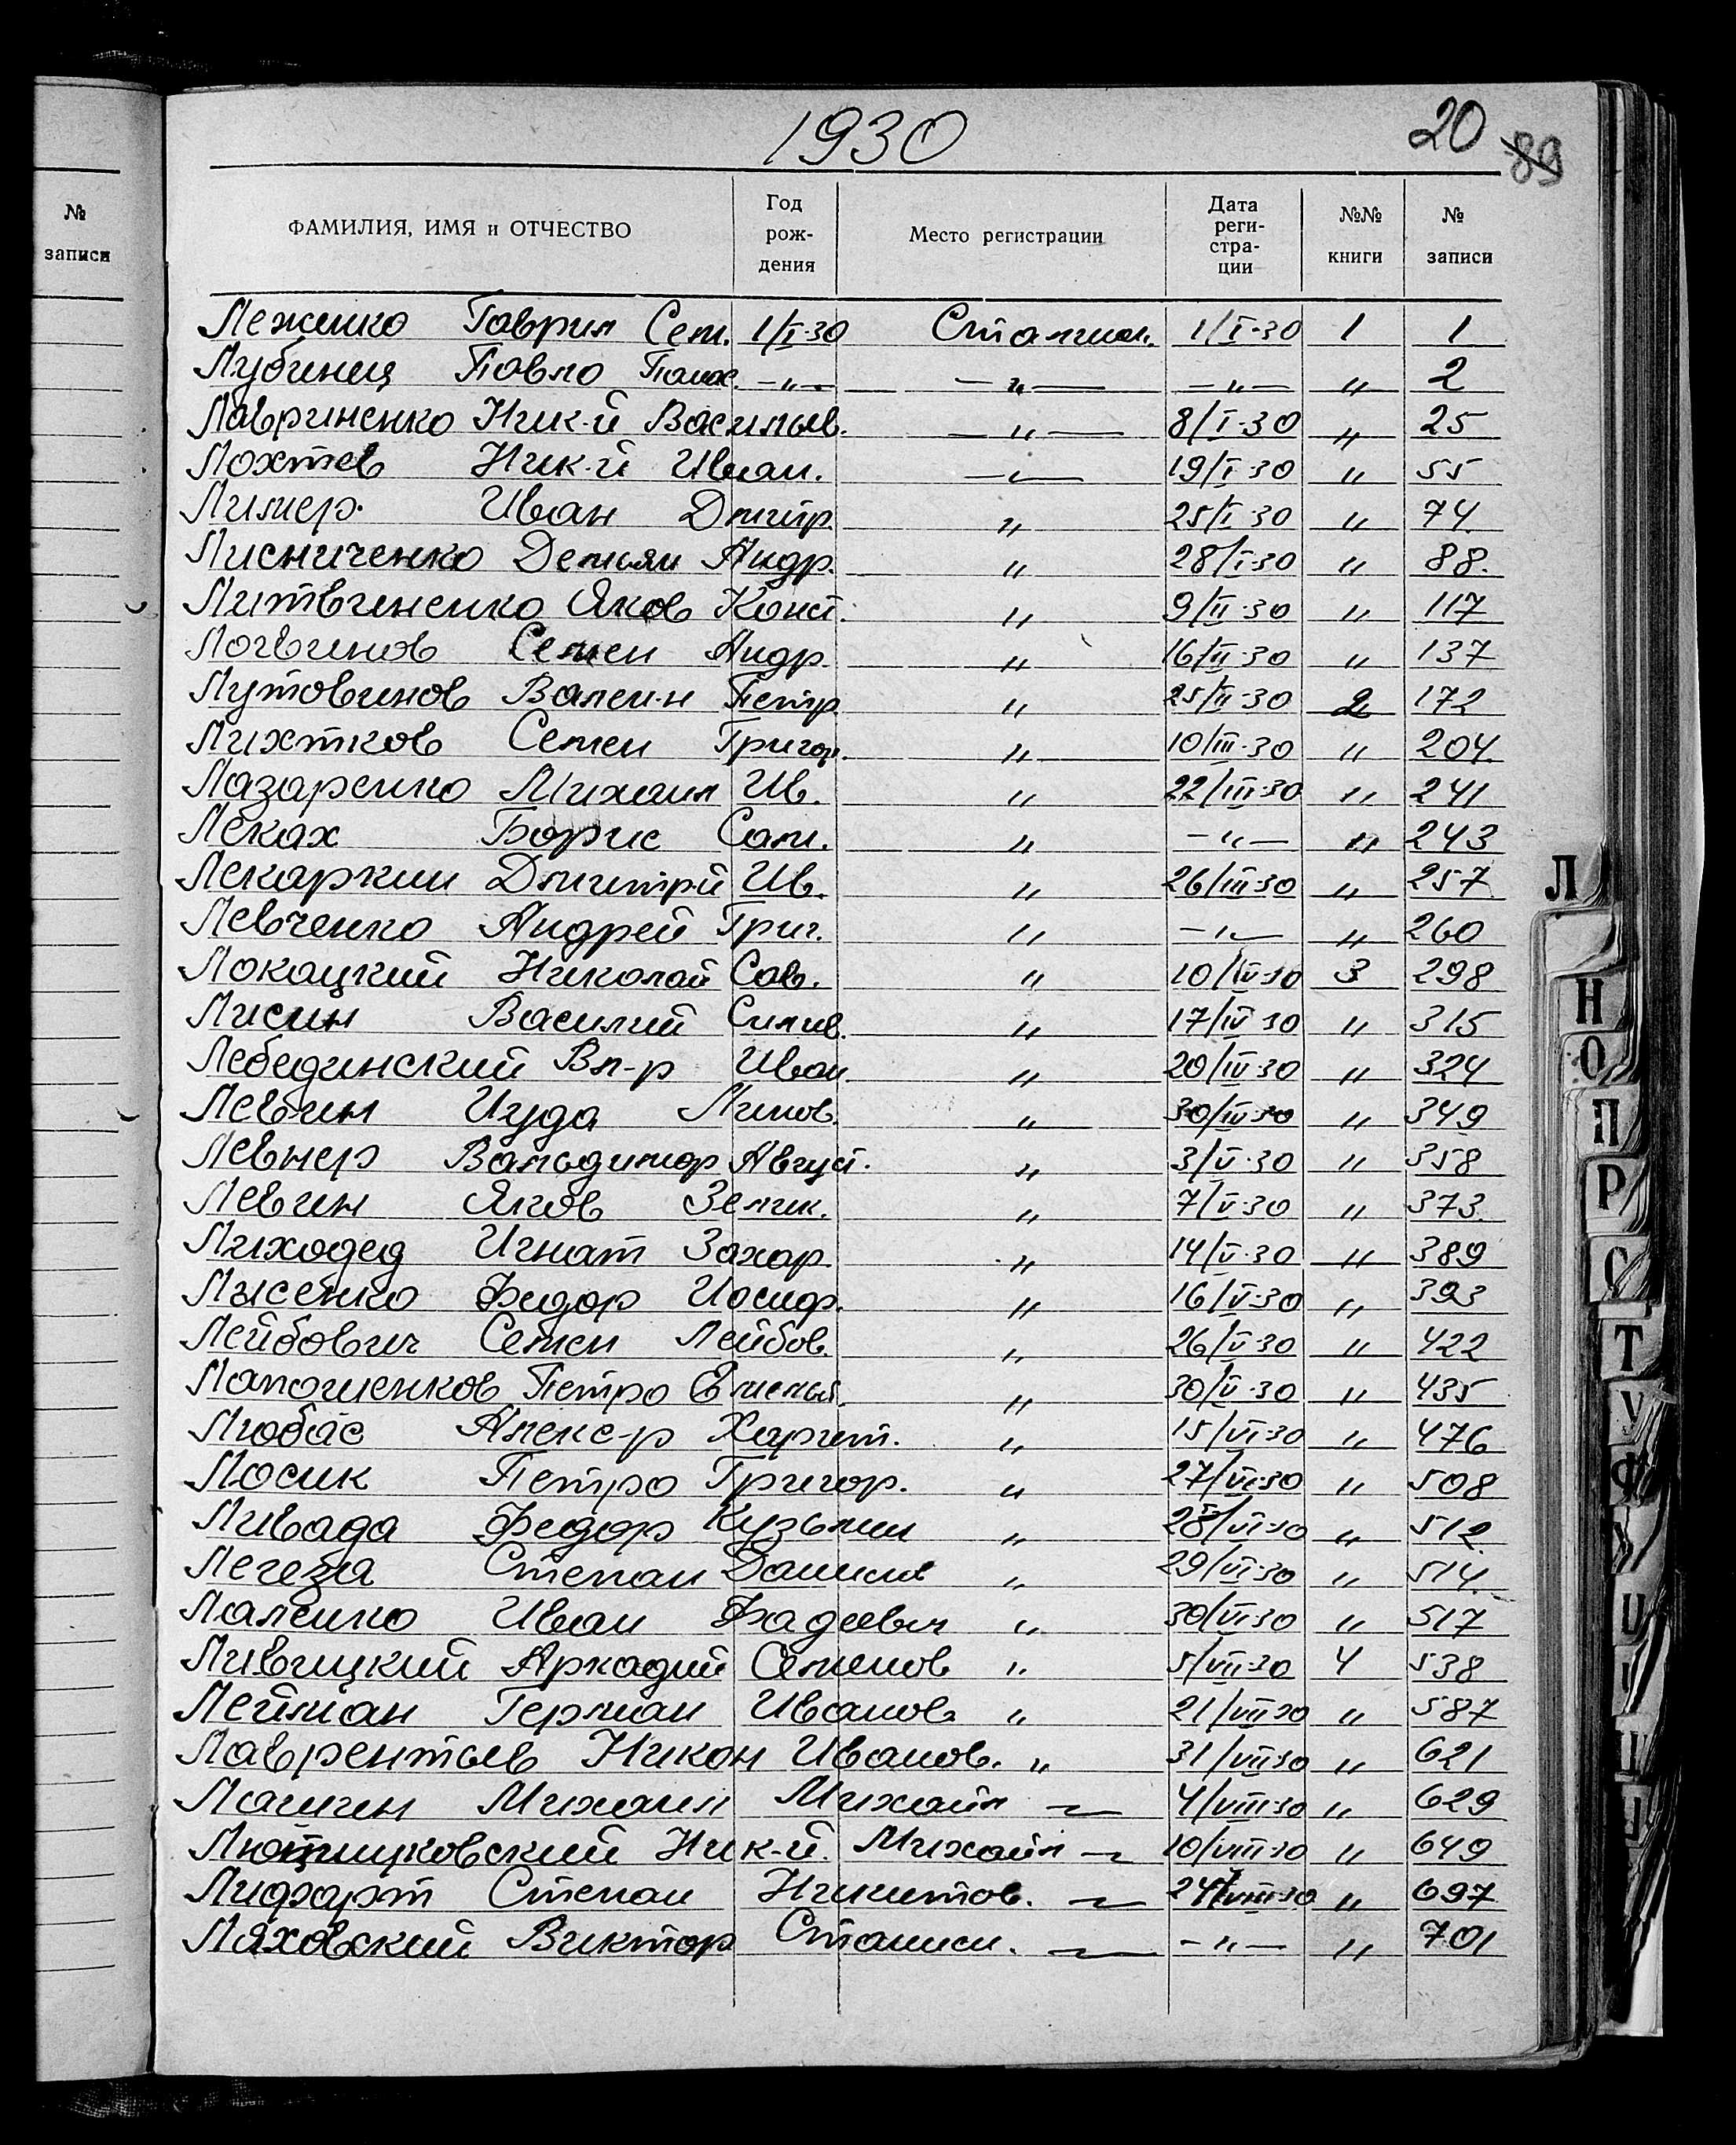 1930
20
89
№ записи
ФАМИЛИЯ, ИМЯ и ОТЧЕСТВО | Год рож-дения | Место регистрации | Дата реги-стра-ции | №№ книги | № записи
Леженко Гаврил Сем. 1/I-30 Сталинск. 1/I-30 1 1
Лубинец Павло Панас. -„- -„- -„- „ 2
Лавриненко Ник-й Васильев. -„- 8/I-30 „ 25
Лохтев Ник-й Иван. -„- 19/I-30 „ 55
Лимер. Иван Дмитр. „ 25/I-30 „ 74
Лисниченко Демьян Андр. „ 28/I-30 „ 88.
Литвиненко Яков Конст. „ 9/II-30 „ 117
Логвинов Семен Андр. „ 16/II-30 „ 137
Лутовинов Вален-н Петр. „ 25/II-30 2 172
Лихтков Семен Григор. „ 10/III-30 „ 204.
Лазаренко Михаил Ив. „ 22/III-30 „ 241
Леках Борис Сам. „ -„- „ 243
Лекаркин Дмитрий Ив. „ 26/III-30 „ 257
Левченко Андрей Григ. „ -„- „ 260
Локацкий Николай Сав. „ 10/IV-30 3 298
Лисин Василий Силив. „ 17/IV-30 „ 315
Лебединский Вл-р Иван. „ 20/IV-30 „ 324
Левин Иуда „ 30/IV-30 „ 349
Левнер Вальдимар Август. „ 3/V-30 „ 358
Левин Яков Зелик. „ 7/V-30 „ 373.
Лиходед Игнат Захар. „ 14/V-30 „ 389
Лысенко Федор Иосиф. „ 16/V-30 „ 393
Лейбович Семен Лейбов. „ 26/V-30 „ 422
Лапошенков Петро Емельян. „ 30/V-30 „ 435
Любас Алекс-р Харит. „ 15/VI-30 „ 476
Лосик Петро Григор. „ 27/VI-30 „ 508
Ливада Федор Кузьмин „ 28/VI-30 „ 512.
Легеза Степан Данилов „ 29/VI-30 „ 514.
Лаленко Иван Фадеевич „ 30/VI-30 „ 517
Ливицкий Аркадий Семенов „ 5/VII-30 4 538
Лейман Герман Иванов. „ 21/VII-30 „ 587
Лаврентьев Никон Иванов. „ 31/VII-30 „ 621
Лашин Михаил Михайл - 4/VIII-30 „ 629
Ник-й. Михайл - 10/VIII-30 „ 649
Лифарт Степан Никитов. - 24/VIII-30 „ 697
Ляховский Виктор Станисл. - -„- „ 701
Л
Н
О
П
Р
С
Т
У
Ф